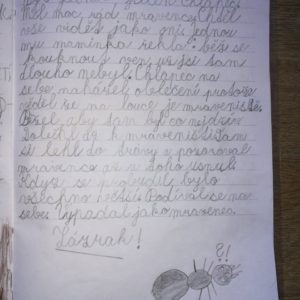 byl jeden malý chlapec.
Měl moc rád mravence. Chtěl
vše vidět jako oni. Jednou
mu maminka řekla: běž se
kouknout ven už jsi tam
dlouho nebyl. Chlapec na
sebe naházel oblečení protože
věděl že na louce je mraveniště.
Běžel aby tam byl co nejdřív.
Doběhl až k mraveništi. Tam
si lehl do trávy a pozoroval
mravence až u toho usnul.
Když se probudil bylo
všechno větší. Podíval se na
sebe. Vypadal jako mravenec.
Zázrak!
?!